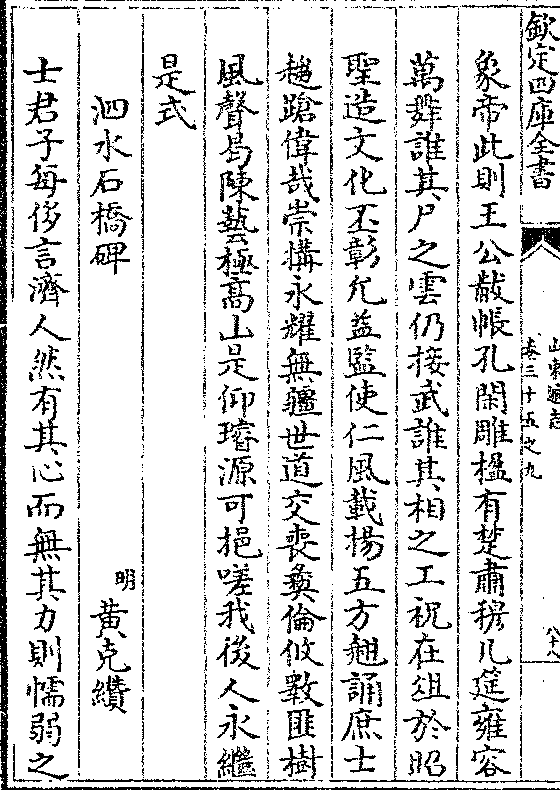 欽定四庫全書
山東通志
卷三十五之九
八十八
象帝此則王公黻帳孔閑雕楹有楚肅穆几筵雍容
萬舞誰其尸之雲仍接武誰其相之工祝在俎於昭
聖造文化丕彰允益監使仁風載揚五方翹誦庶士
趨蹌偉哉崇構永耀無疆世道交喪彝倫攸斁匪樹
風聲曷陳藝極高山是仰璿源可挹嗟我後人永繼
是式
泗水石橋碑
明 黃克纘
士君子每侈言濟人然有其心而無其力則懦弱之